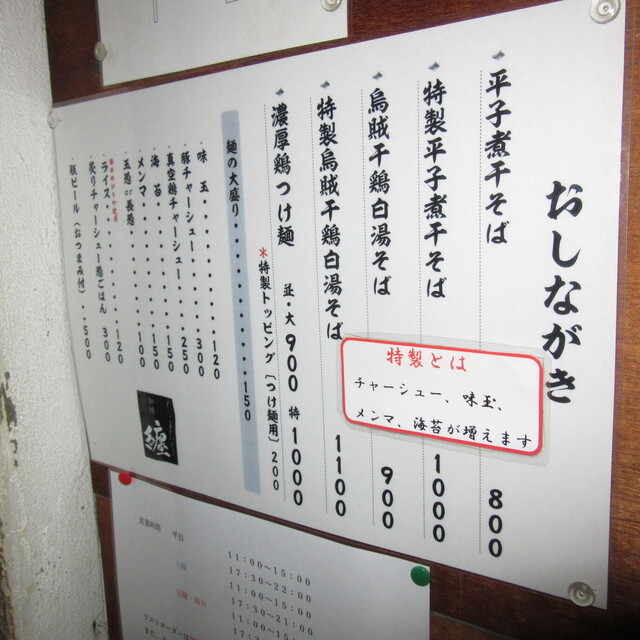 おしながき
平子煮干そば 800
特製平子煮干そば 1000
烏賊干鶏白湯そば 900
特製烏賊干鶏白湯そば 1100
濃厚鶏つけ麺 並・大 900 特 1000
*特製トッピング(つけ麺用) 200
麺の大盛り・・・・・・・・・・・・150
・味玉・・・・・・・120
・豚チャーシュー・・・・300
・真空鶏チャーシュー・・・250
・海苔・・・・・・・150
・メンマ・・・・・・100
・玉葱or長葱・・・・150
・ライス・・・・・・120
・炙りチャーシュー葱ごはん 300
・瓶ビール(おつまみ付) 500
特製とは
チャーシュー、味玉、
メンマ、海苔が増えます
纏
営業時間 平日 11:00~15:00
17:30~22:00
11:00~15:00
17:30~21:00